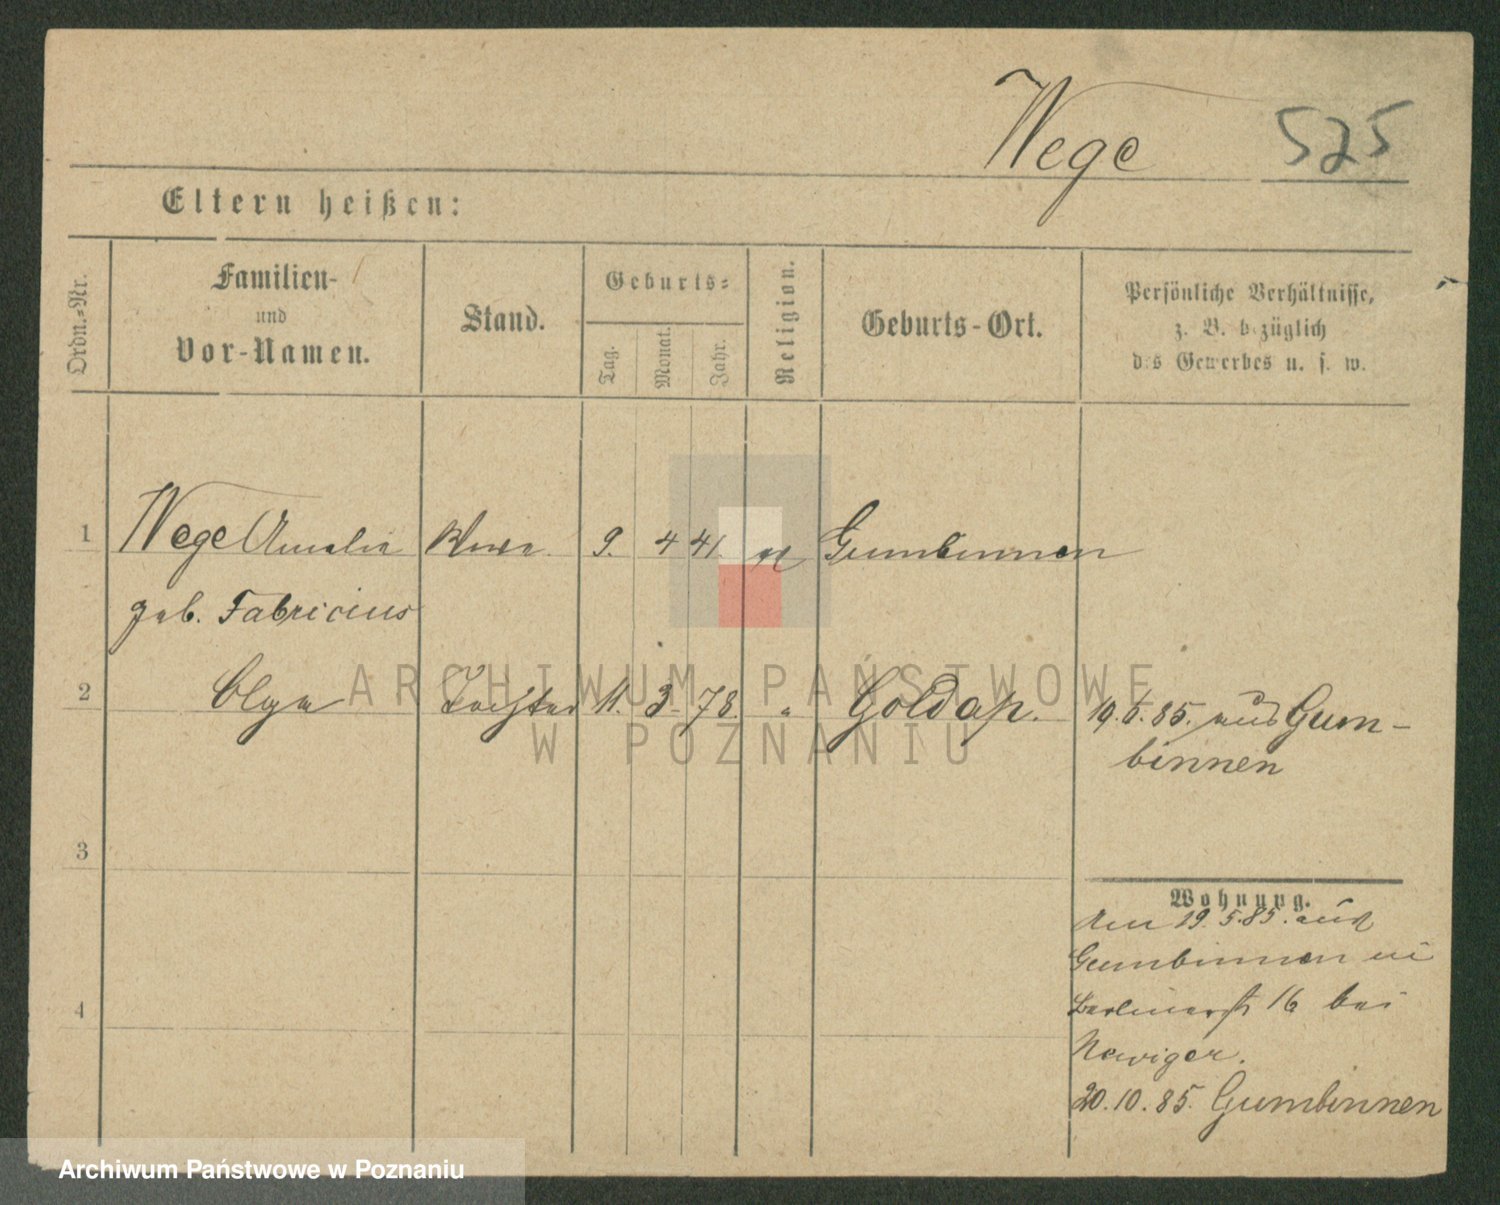 Wege 525
Eltern heißen:
Ordn.-Nr.
Familien-
und
Vor-Namen.
Stand.
Geburts=
Tag.
Monat.
Jahr.
Religion.
Geburts-Ort.
Persönliche Verhältnisse,
z. B. bezüglich
des Gewerbes u. s. w.
1 Wege Amalie 9. 4 41. Gumbinnen
geb. Fabricius
2 Olga Tochter 11. 3. 78. " Goldap. 85. aus Gum-
binnen
3
Wohnung.
Am 19.5.85. aus
Gumbinnen
4
Berlinerstr 16 bei
Nawiger.
20.10.85. Gumbinnen
ARCHIWUM PAŃSTWOWE
W POZNANIU
Archiwum Państwowe w Poznaniu